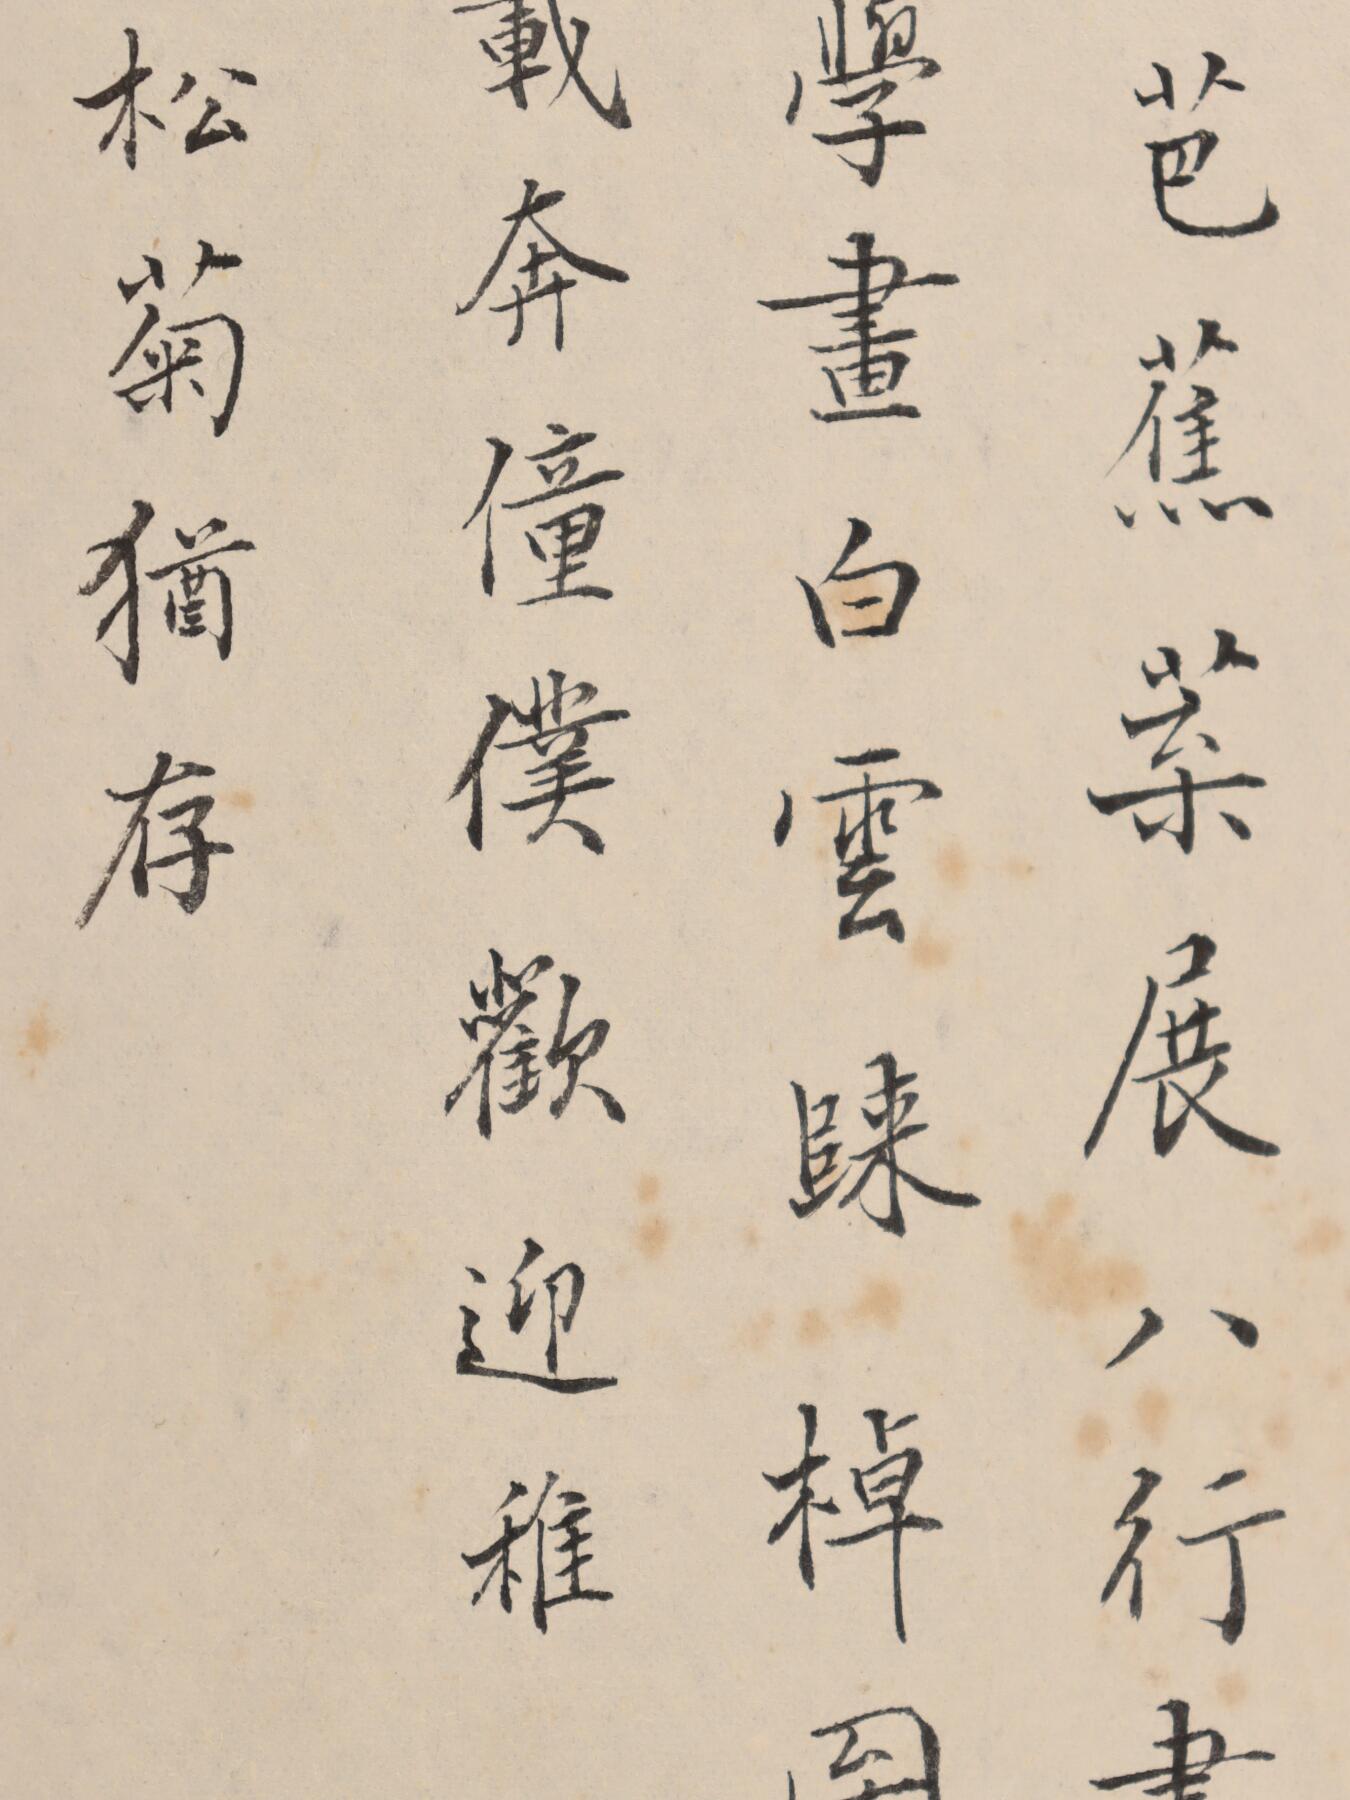 芭蕉葉展八行書
學畫白雲歸棹
載奔僮僕歡迎稚
松菊猶存